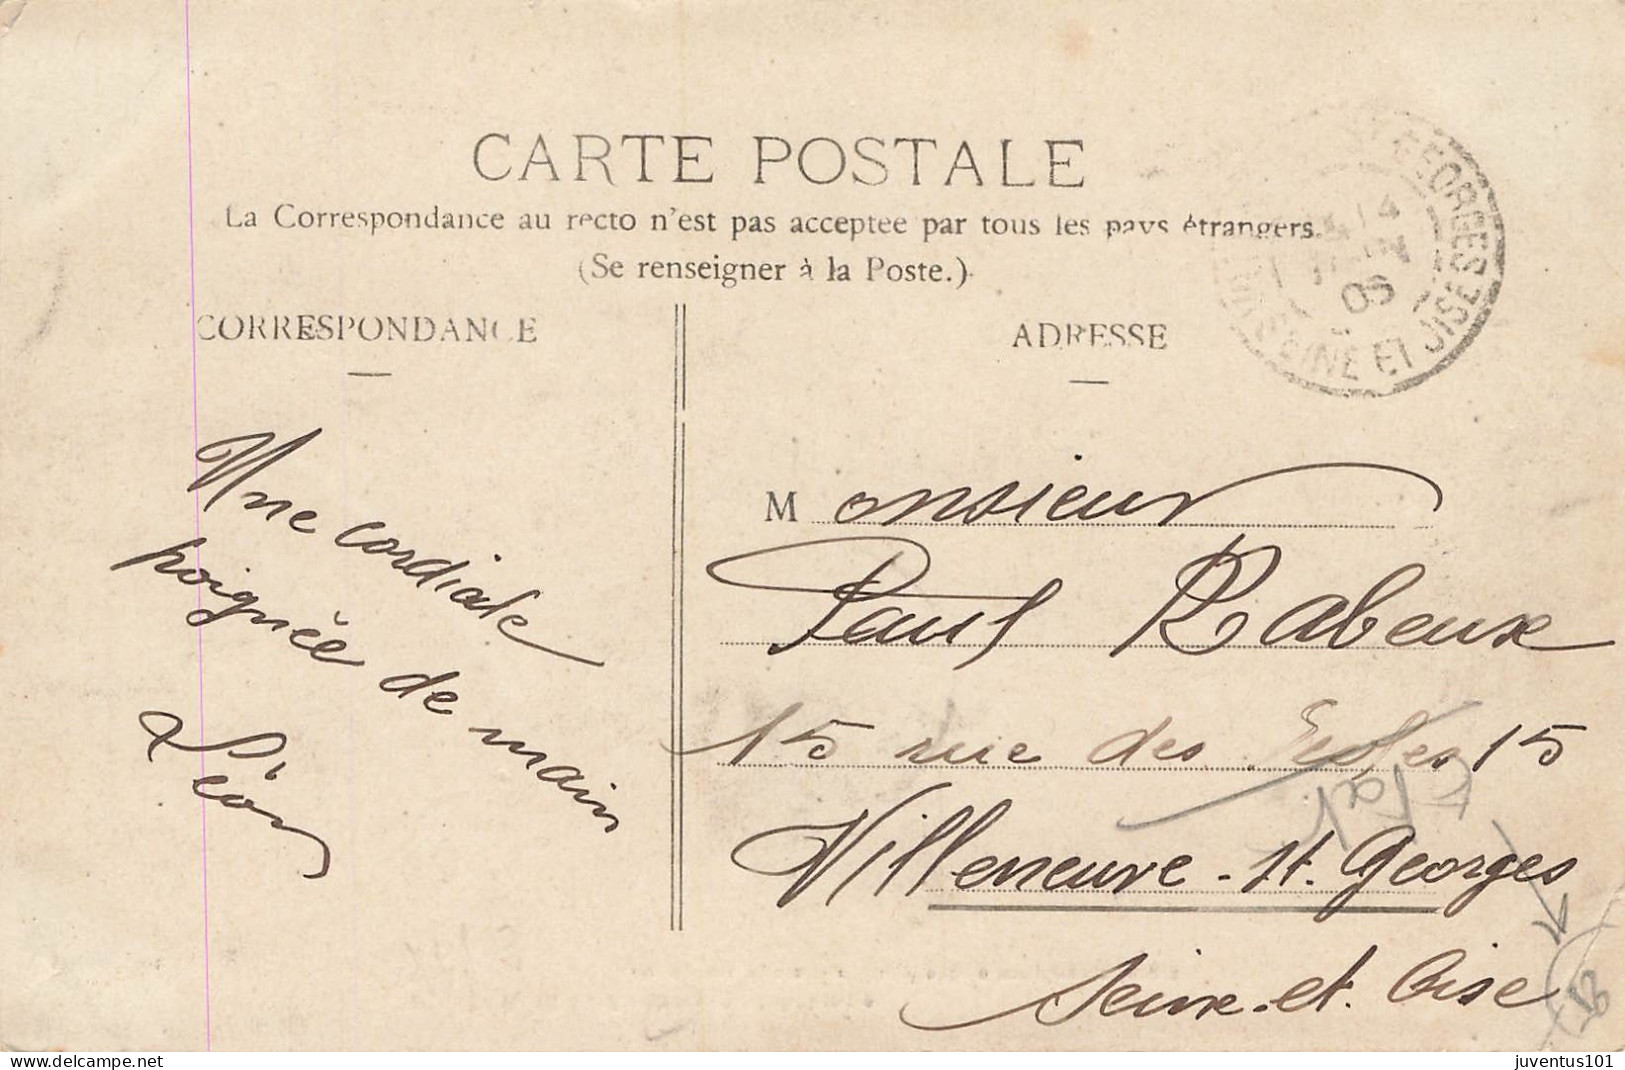 CARTE POSTALE
La Correspondance au recto n'est pas acceptée par tous les pays étrangers.
(Se renseigner à la Poste.)
CORRESPONDANCE
Une cordiale
poignée de main
Léon
ADRESSE
Monsieur
Paul Rabeux
15 rue des 15
Villeneuve-St. Georges
Seine-et-Oise
GEORGES
SEINE ET OISE
14
JUIN
05
juventus101